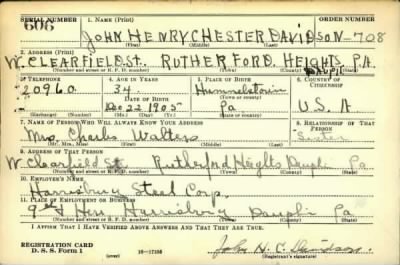 SERIAL NUMBER 1. NAME (Print) ORDER NUMBER
606 JOHN HENRY CHESTER DAVIDSON-708
(First) (Middle) (Last)
2. ADDRESS (Print)
W. CLEARFIELD ST. RUTHERFORD HEIGHTS DAUPH PA.
(Number and street or R. F. D. number) (Town) (County) (State)
3. TELEPHONE 4. AGE IN YEARS 5. PLACE OF BIRTH 6. COUNTRY OF CITIZENSHIP
20960 34 Hummelstown
DATE OF BIRTH (Town or county)
Dec 22 1905 Pa U.S.A
(Exchange) (Number) (Mo.) (Day) (Yr.) (State or country)
7. NAME OF PERSON WHO WILL ALWAYS KNOW YOUR ADDRESS 8. RELATIONSHIP OF THAT PERSON
Mrs. Charles Walters Sister
(Mr., Mrs., Miss) (First) (Middle) (Last)
9. ADDRESS OF THAT PERSON
W. Clearfield St Rutherford Heights Dauphin Pa
(Number and street or R. F. D. number) (Town) (County) (State)
10. EMPLOYER'S NAME
Harrisburg Steel Corp.
11. PLACE OF EMPLOYMENT OR BUSINESS
9th & Harrisburg Dauphin Pa
(Number and street or R. F. D. number) (Town) (County) (State)
I AFFIRM THAT I HAVE VERIFIED ABOVE ANSWERS AND THAT THEY ARE TRUE.
REGISTRATION CARD
D. S. S. Form 1 (over) 16-17105 John H. C. Davidson.